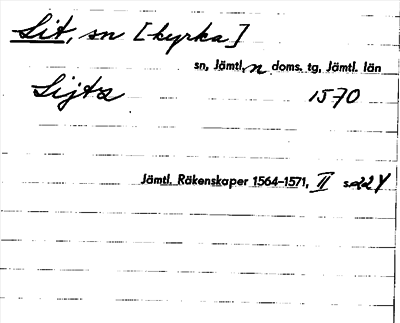 Lit, sn [kyrka]
sn, Jämtl. n doms. tg, Jämtl. län
Lijtz 1570
Jämtl. Räkenskaper 1564-1571, II s.